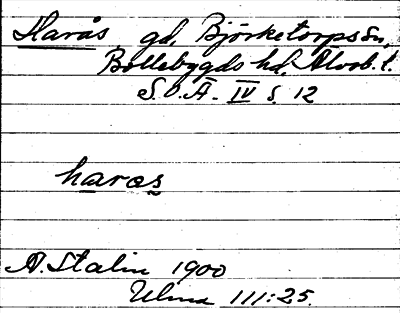 Harås gd, Björketorps sn,
Bollebygds hd, Älvsb. l.
S.O.Ä. IV s. 12
haros
A. Stalin 1900
Ulma 111:25.